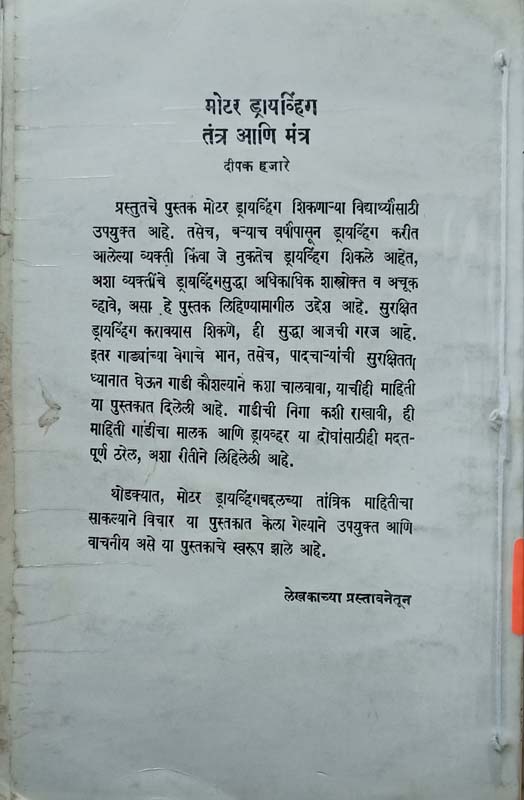 मोटर ड्रायव्हिंग
तंत्र आणि मंत्र
दीपक हजारे
प्रस्तुतचें पुस्तक मोटर ड्रायव्हिंग शिकणाऱ्या विद्यार्थ्यांसाठी
उपयुक्त आहे. तसेच, बऱ्याच वर्षांपासून ड्रायव्हिंग करीत
आलेल्या व्यक्ती किंवा जे नुकतेच ड्रायव्हिंग शिकले आहेत,
अशा व्यक्तींचे ड्रायव्हिंगसुद्धा अधिकाधिक शास्त्रोक्त व अचूक
व्हावे, असा हे पुस्तक लिहिण्यामागील उद्देश आहे. सुरक्षित
ड्रायव्हिंग करावयास शिकणे, ही सुद्धा आजची गरज आहे.
इतर गाड्यांच्या वेगाचे भान, तसेच, पादचाऱ्यांची सुरक्षितता
ध्यानात घेऊन गाडी कौशल्याने कशा चालवावा, याचीही माहिती
या पुस्तकात दिलेली आहे. गाडीची निगा कशी राखावी, ही
माहिती गाडीचा मालक आणि ड्रायव्हर या दोघांसाठीही मदत-
पूर्ण ठरेल, अशा रीतीने लिहिलेली आहे.
थोडक्यात, मोटर ड्रायव्हिंगबद्दलच्या तांत्रिक माहितीचा
साकल्याने विचार या पुस्तकात केला गेल्याने उपयुक्त आणि
वाचनीय असे या पुस्तकाचे स्वरूप झाले आहे.
लेखकाच्या प्रस्तावनेतून